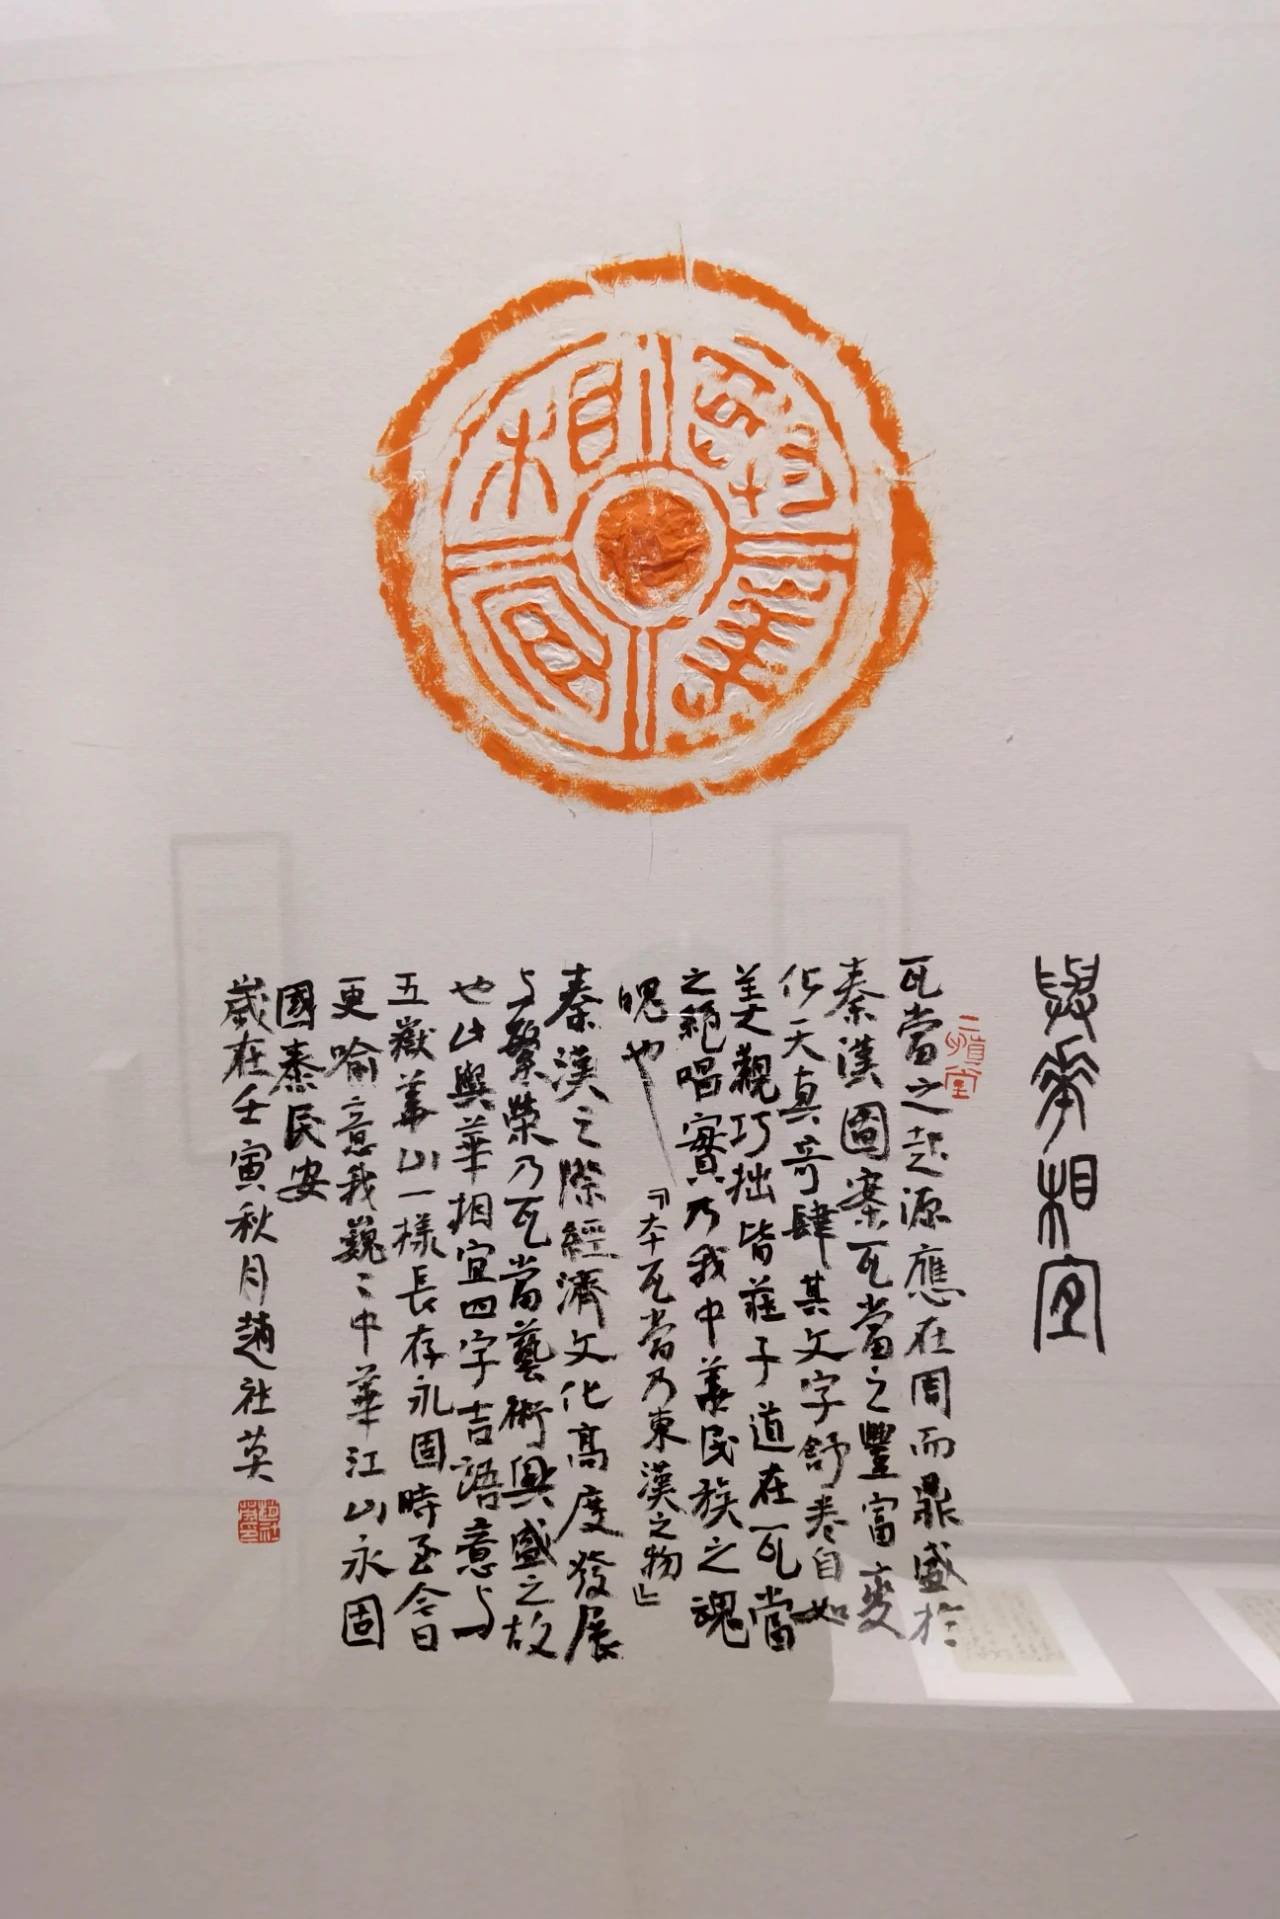 與華相宜
與華相宜
瓦當之起源應在周而鼎盛於
秦漢圖案瓦當之豐富變
化天真奇肆其文字舒卷自如
美觀巧拙皆莊子道在瓦當
之絕唱實乃我中華民族之魂
魄也
『本瓦當乃東漢之物』
秦漢之際經濟文化高度發展
与繁榮乃瓦當藝術興盛之故
也此與華相宜四字吉語意与
五嶽華山一樣長存永固時至今日
更喻意我巍〻中華江山永固
國泰民安
歲在壬寅秋月趙社英